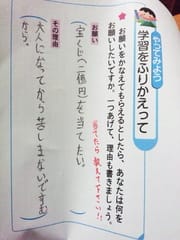 やってみよう
学習をふりかえって
お願いをかなえてもらえるとしたら、あなたは何を
お願いしたいですか。一つあげて、理由も書きましょう。
お願い
宝くじ(二億円)を当てたい。
当てたら教えて下さい!!
その理由
大人になってから苦しまないですむ
から。